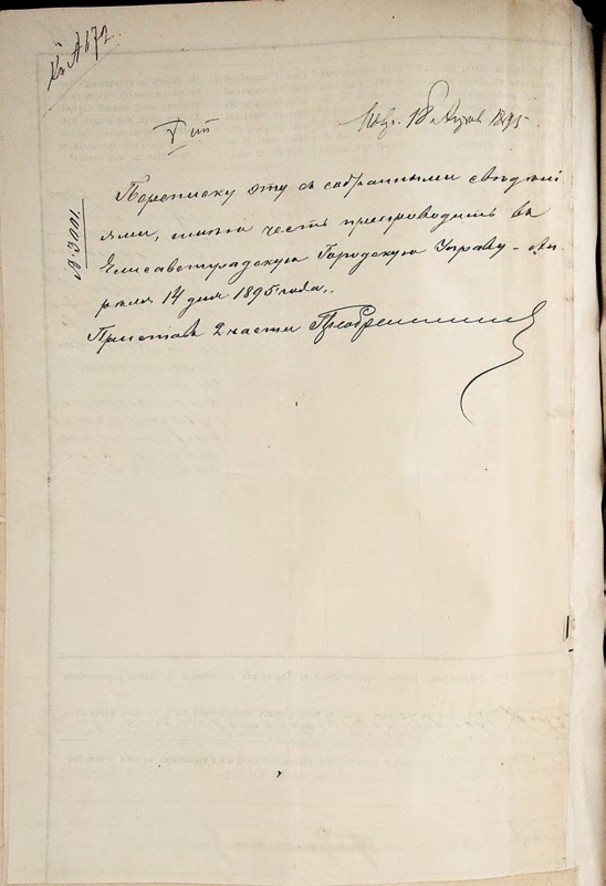 Къ № 672.
V ст
18 Апр 1895
Переписку эту съ собранными свѣдѣнi
ями, имѣю честь препроводить въ
Елисаветградскую Городскую Управу – Ап-
рѣля 14 дня 1895 года.
Приставъ 2 части